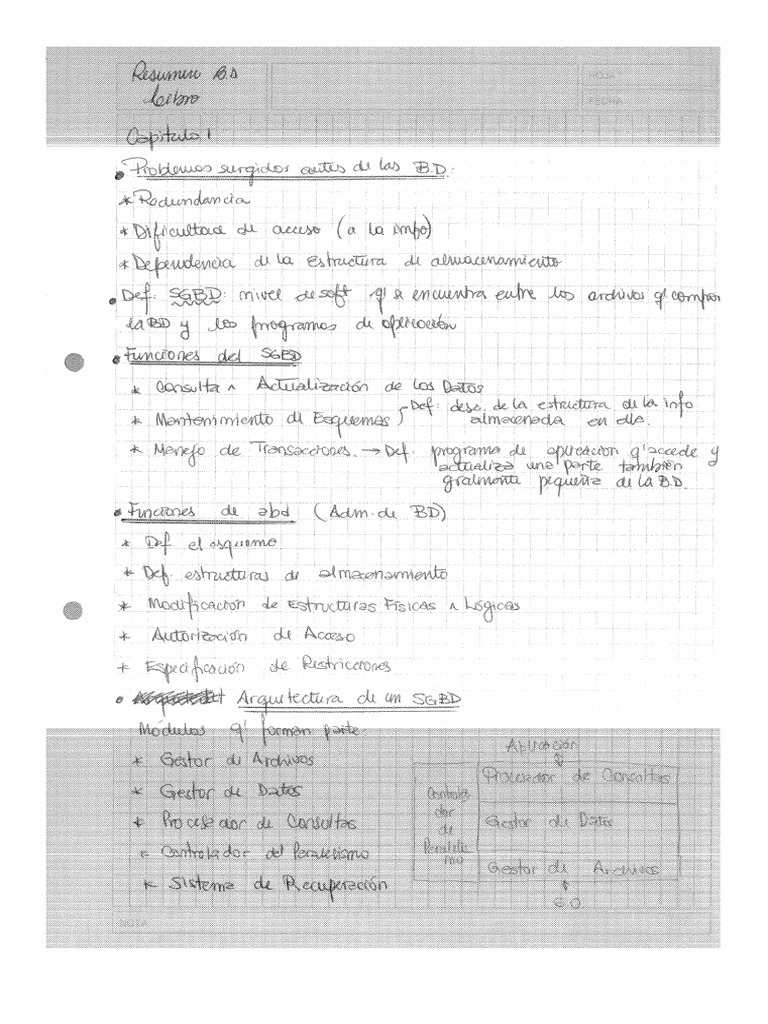 Resumen B.D
Libro
HOJA
FECHA
Capitulo 1
• Problemas surgidos antes de las B.D.
* Redundancia
* Dificultad de acceso (a la info)
* Dependencia de la estructura de almacenamiento
• Def: SGBD: nivel de soft q' se encuentra entre los archivos q' compon
la BD y los programas de aplicación
• Funciones del SGBD
* Consulta ^ Actualización de los Datos
* Mantenimiento de Esquemas Def: desc. de la estructura de la info
almacenada en ella.
* Manejo de Transacciones. → Def. programa de aplicación q' accede y
actualiza una parte también
gralmente pequeña de la B.D.
• Funciones de abd (Adm. de BD)
* Def el esquema.
* Def. estructuras de almacenamiento
* Modificación de Estructuras Físicas ^ Lógicas
* Autorización de Acceso
* Especificación de Restricciones
• Arquitectura de un SGBD
Módulos q' forman parte:
* Gestor de Archivos
* Gestor de Datos
* Procesador de Consultas
* Controlador del Paralelismo
* Sistema de Recuperación
Aplicación
Procesador de Consultas
Controla
dor
de
Paralelis
mo
Gestor de Datos
Gestor de Archivos
NOTA